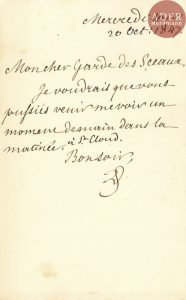 ADER
Nordmann
Mercredi
20 Oct. 1847.
Mon cher Garde des Sceaux,
Je voudrais que vous
pussiés venir me voir un
moment demain dans la
matinée, à St Cloud.
Bonsoir,